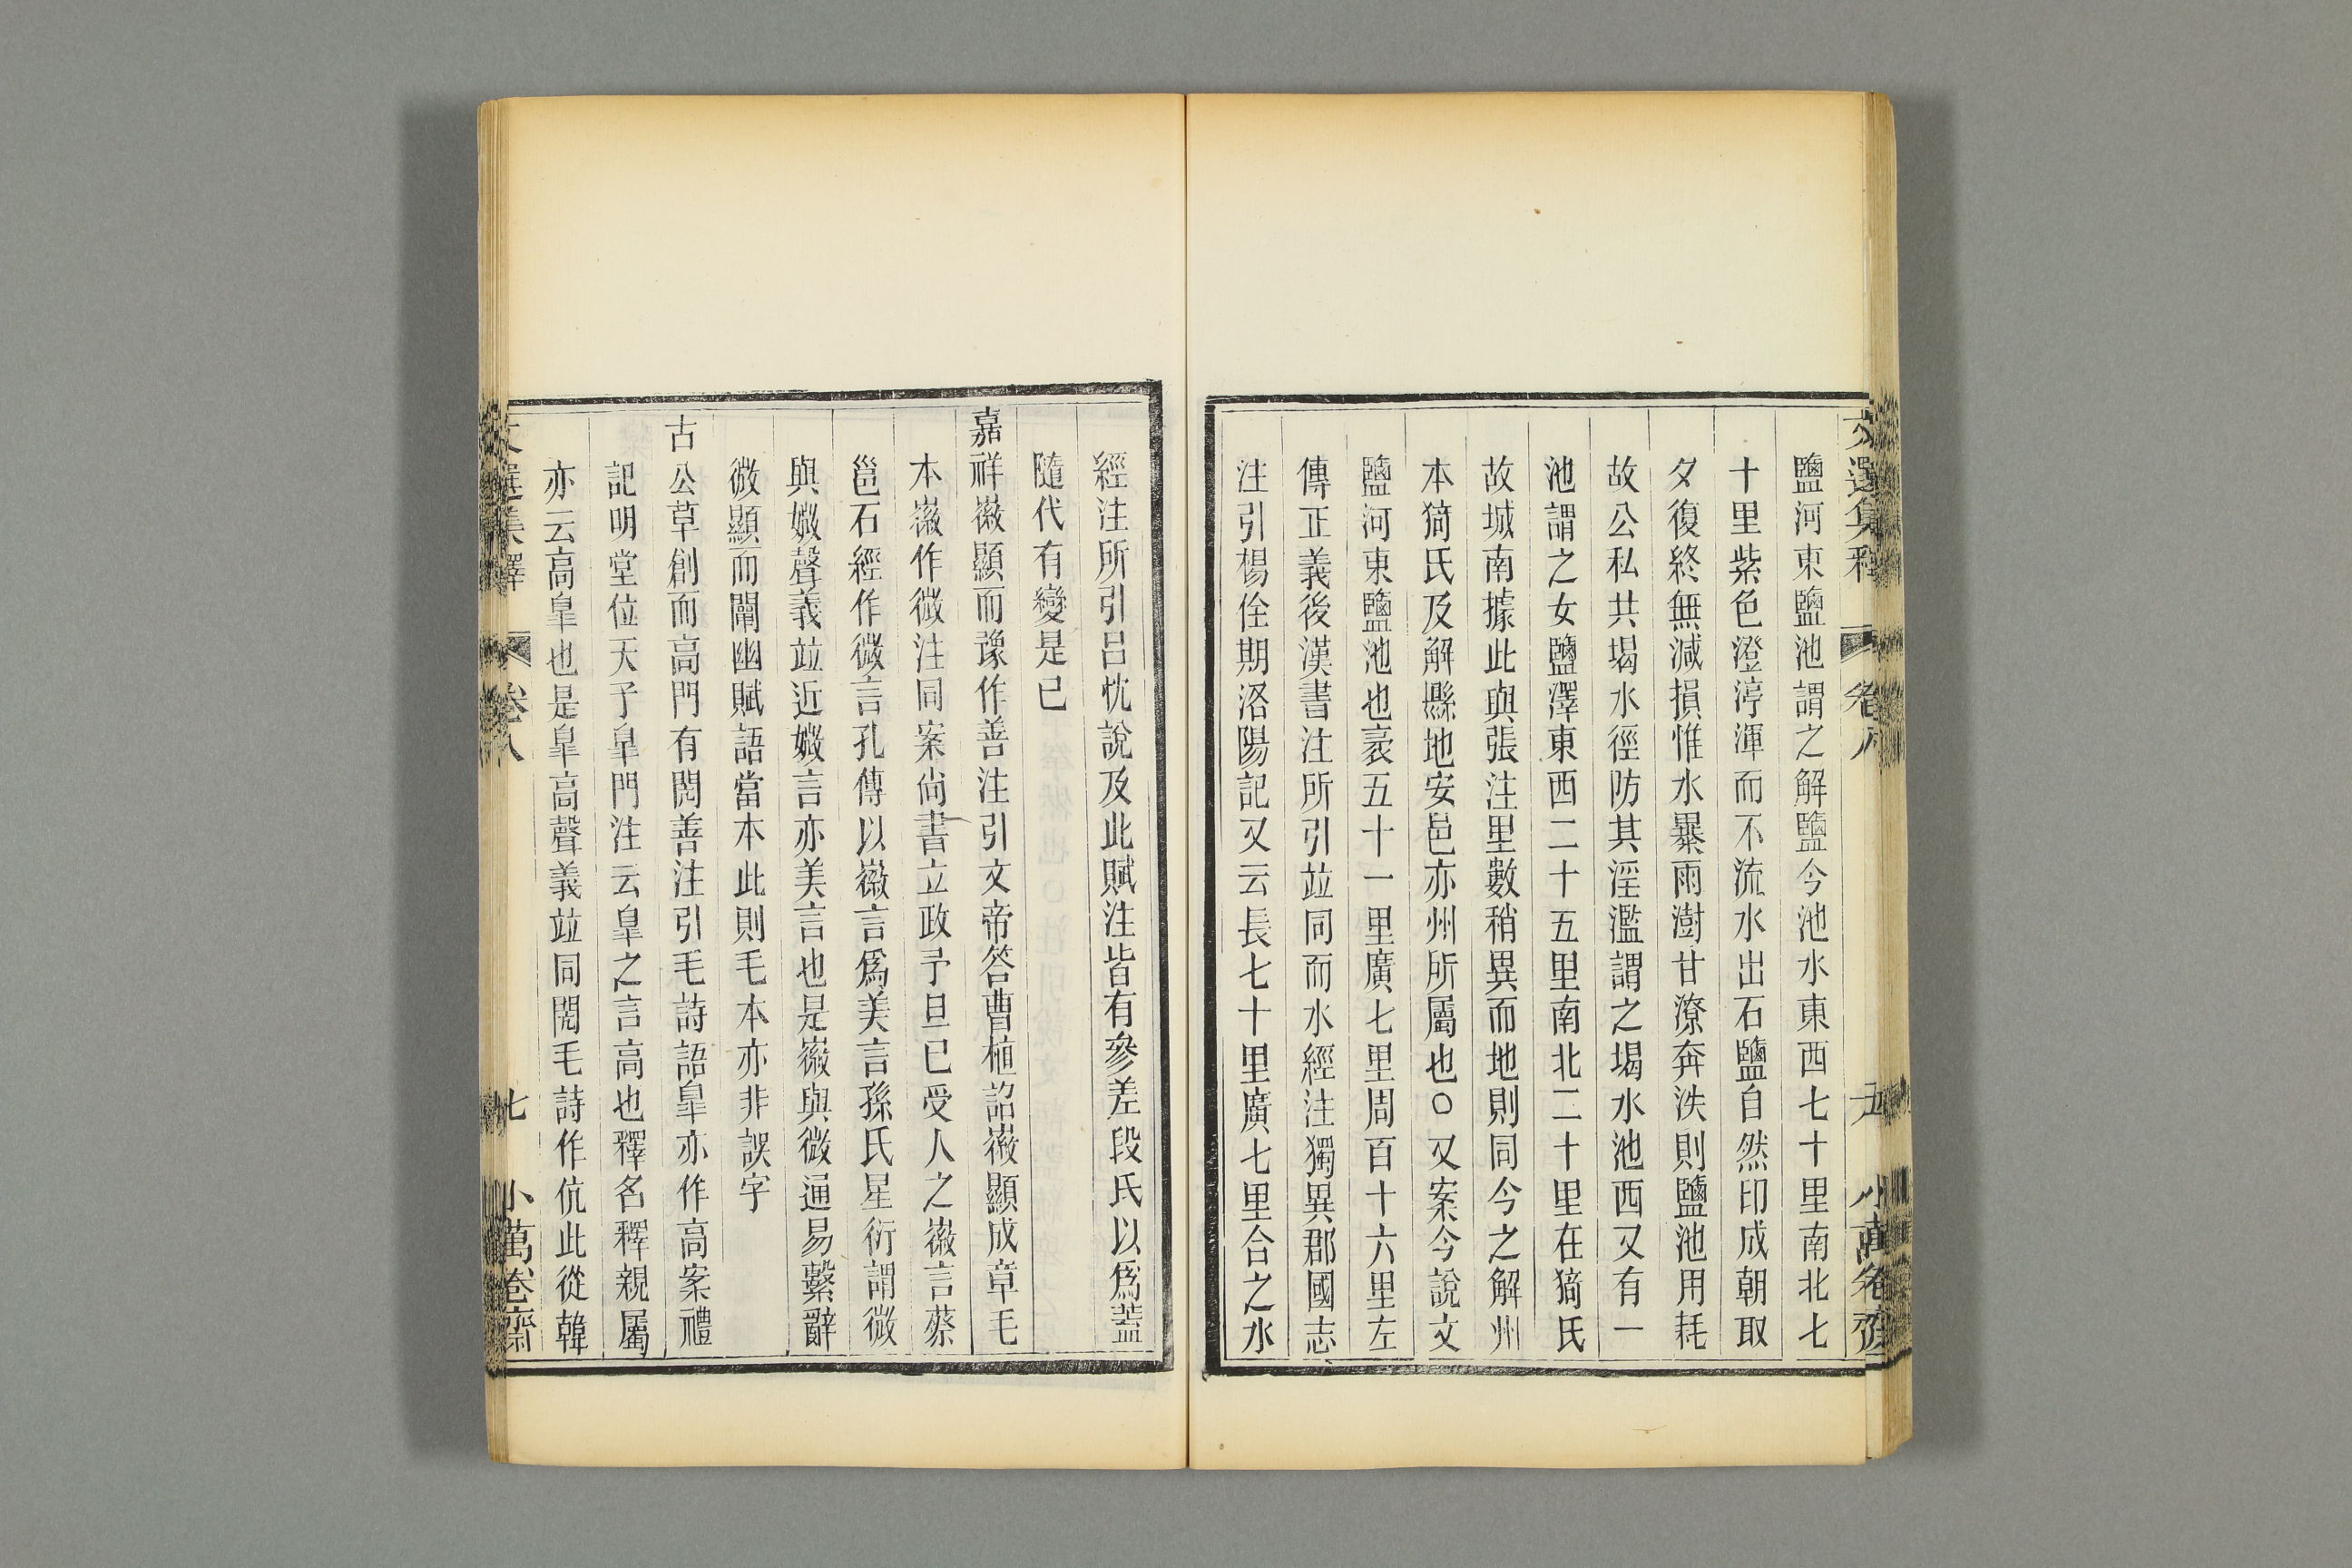 文選集釋 卷八 六 小萬卷齋
鹽河東鹽池謂之解鹽今池水東西七十里南北七
十里紫色澄渟渾而不流水出石鹽自然印成朝取
夕復終無減損惟水暴雨澍甘潦奔泆則鹽池用耗
故公私共堨水徑防其淫濫謂之堨水池西又有一
池謂之女鹽澤東西二十五里南北二十里在猗氏
故城南據此與張注里數稍異而地則同今之解州
本猗氏及解縣地安邑亦州所屬也○又案今說文
鹽河東鹽池也袤五十一里廣七里周百十六里左
傳正義後漢書注所引竝同而水經注獨異郡國志
注引楊佺期洛陽記又云長七十里廣七里合之水
經注所引呂忱說及此賦注皆有參差段氏以爲蓋
隨代有變是已
嘉祥徽顯而豫作善注引文帝答曹植詔徽顯成章毛
本徽作微注同案尚書立政予旦已受人之徽言蔡
邕石經作微言孔傳以徽言爲美言孫氏星衍謂微
與媺聲義竝近媺言亦美言也是徽與微通易繫辭
微顯而闡幽賦語當本此則毛本亦非誤字
古公草創而高門有閌善注引毛詩語皐亦作高案禮
記明堂位天子皐門注云皐之言高也釋名釋親屬
亦云高皐也是皐高聲義竝同閌毛詩作伉此從韓
文選集釋 卷八 七 小萬卷齋